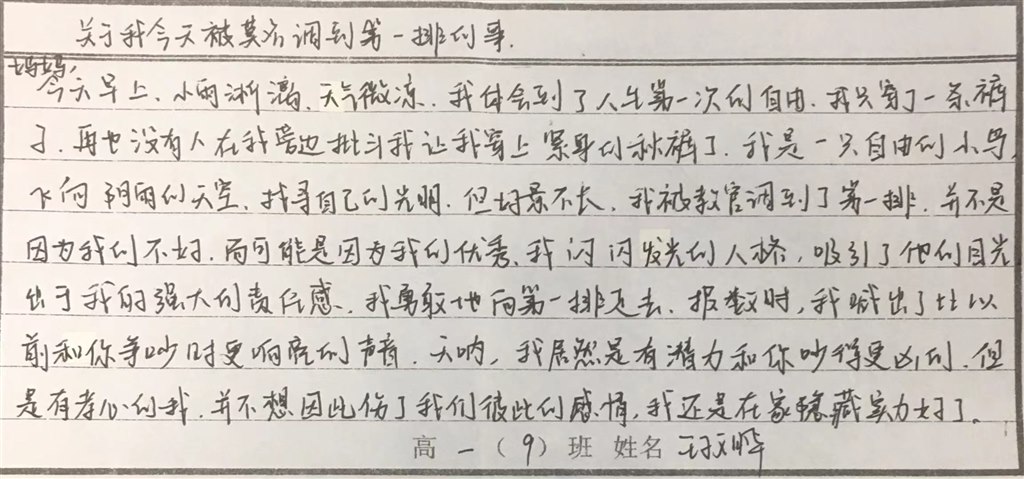 关于我今天被莫名调到第一排的事.
妈妈,
今天早上.小雨淅漓.天气微凉.我体会到了人生第一次的自由.我只穿了一条裤
了.再也没有人在我旁边批斗我让我穿上紧身的秋裤了.我是一只自由的小鸟,
飞向阴雨的天空.找寻自己的光明.但好景不长.我被教官调到了第一排.并不是
因为我的不好.而可能是因为我的优秀.我闪闪发光的人格,吸引了他们目光
出于我的强大的责任感.我勇敢地向第一排迈去.报数时,我喊出了比以
前和你争吵时更响亮的声音.天呐,我居然是有潜力和你吵得更凶的.但
是有孝心的我.并不想因此伤了我们彼此的感情,我还是在家隐藏实力好了.
高一(9)班 姓名